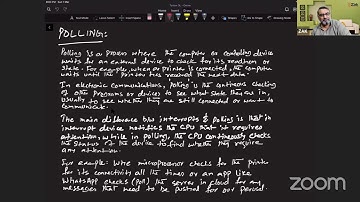 POLLING:
Polling is a process where the computer or controlling device
waits for an external device to check for its readiness or
state. For example, when a printer is connected, the computer
waits until the printer has received the next data.
In electronic communications, Polling is the continuous checking
of other programs or devices to see what state they are in
usually to see whether they are still connected or want to
communicate.
The main difference b/w interrupts & polling is that in
interrupt device notifies the CPU that it requires
attention while in polling, the CPU continuously checks
the status of the device to find whether they require
any attention.
For example: Like microprocessor checks for the printer
for its connectivity all the times or an app like
WhatsApp checks (Poll) the server in cloud for any
messages that need to be pushed for our period.
zoom